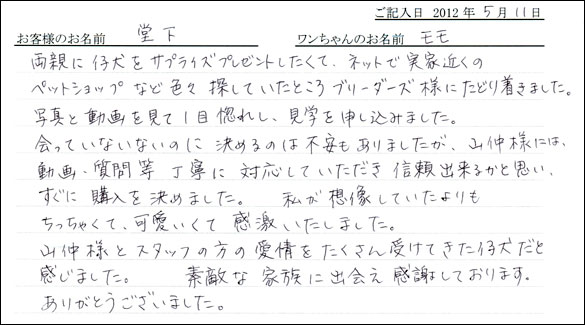 ご記入日 2012年5月11日
お客様のお名前 堂下 ワンちゃんのお名前 モモ
両親に仔犬をサプライズプレゼントしたくて、ネットで実家近くの
ペットショップなど色々探していたところブリーダーズ様にたどり着きました。
写真と動画を見て1目惚れし、見学を申し込みました。
会っていないないのに決めるのは不安もありましたが、山仲様には、
動画、質問等丁寧に対応していただき信頼出来るかと思い、
すぐに購入を決めました。 私が想像していたよりも
ちっちゃくて、可愛いくて感激いたしました。
山仲様とスタッフの方の愛情をたくさん受けてきた仔犬だと
感じました。 素敵な家族に出会え感謝しております。
ありがとうございました。